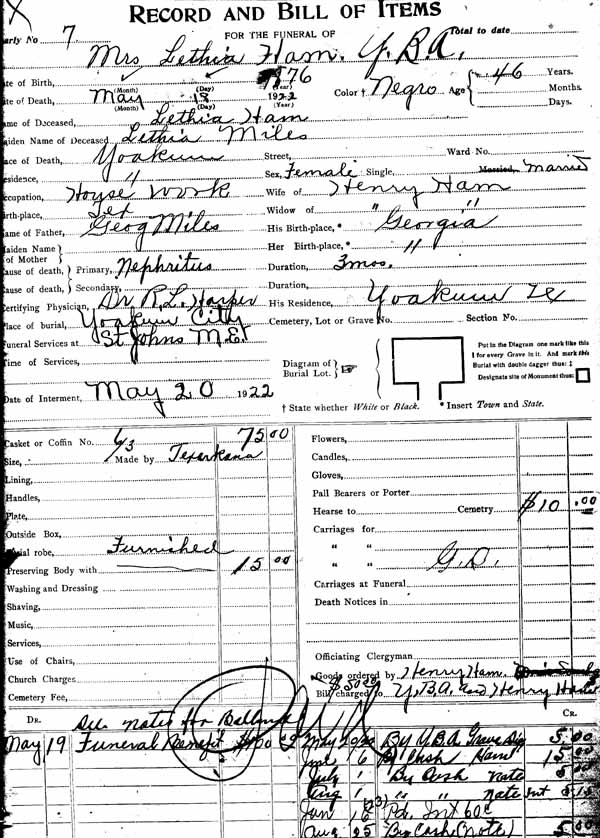 RECORD AND BILL OF ITEMS
FOR THE FUNERAL OF
Total to date
arly No 7
Mrs Lethia Ham. Y.B.A.
te of Birth, 1876
(Month) (Day) (Year)
Color † Negro Age 46 Years.
Months.
Days.
te of Death, May 18 1922
(Month) (Day) (Year)
ame of Deceased, Lethia Ham
aiden Name of Deceased, Lethia Miles
ace of Death, Yoakum Street, Ward No.
esidence, " Sex, Female Single, Married, Married
ccupation, House Work Wife of Henry Ham
irth-place, Tex Widow of " "
ame of Father, Geog Miles His Birth-place,* Georgia
aiden Name of Mother } Her Birth-place,* "
ause of death, } Primary, Nephritus Duration, 3 mos.
ause of death, } Secondary, Duration,
ertifying Physician, Dr R.L. Harper His Residence, Yoakum Te
lace of burial, Yoakum City Cemetery, Lot or Grave No. Section No.
uneral Services at St Johns M.E.
ime of Services,
Diagram of Burial Lot. }
Put in the Diagram one mark like this
I for every Grave in it. And mark this
Burial with double dagger thus: ‡
Designate site of Monument thus:
Date of Interment, May 20 1922
† State whether White or Black. * Insert Town and State.
Casket or Coffin No. 6/3 75 00
Size, Made by Texarkana
Lining,
Handles,
Plate,
Outside Box,
ial robe, Furnished
Preserving Body with 15 00
Washing and Dressing
Shaving,
Music,
Services,
Use of Chairs,
Church Charges
Cemetery Fee,
Flowers,
Candles,
Gloves,
Pall Bearers or Porter
Hearse to Cemetery $10 .00
Carriages for
" "
" " G.D.
Carriages at Funeral
Death Notices in
Officiating Clergyman
Goods ordered by Henry Ham.
Bill charged to Y.B.A. and Henry
DR. See notes for CR.
May 19 Funeral
May 20 By Y.B.A. Grave Dig 5.00
June 6 By Cash Ham 15.00
July 1 By Cash note
Aug 1 " " note Int
Jan 16 Pd. Int 60c
Aug 25 By Cash (note) 5.00